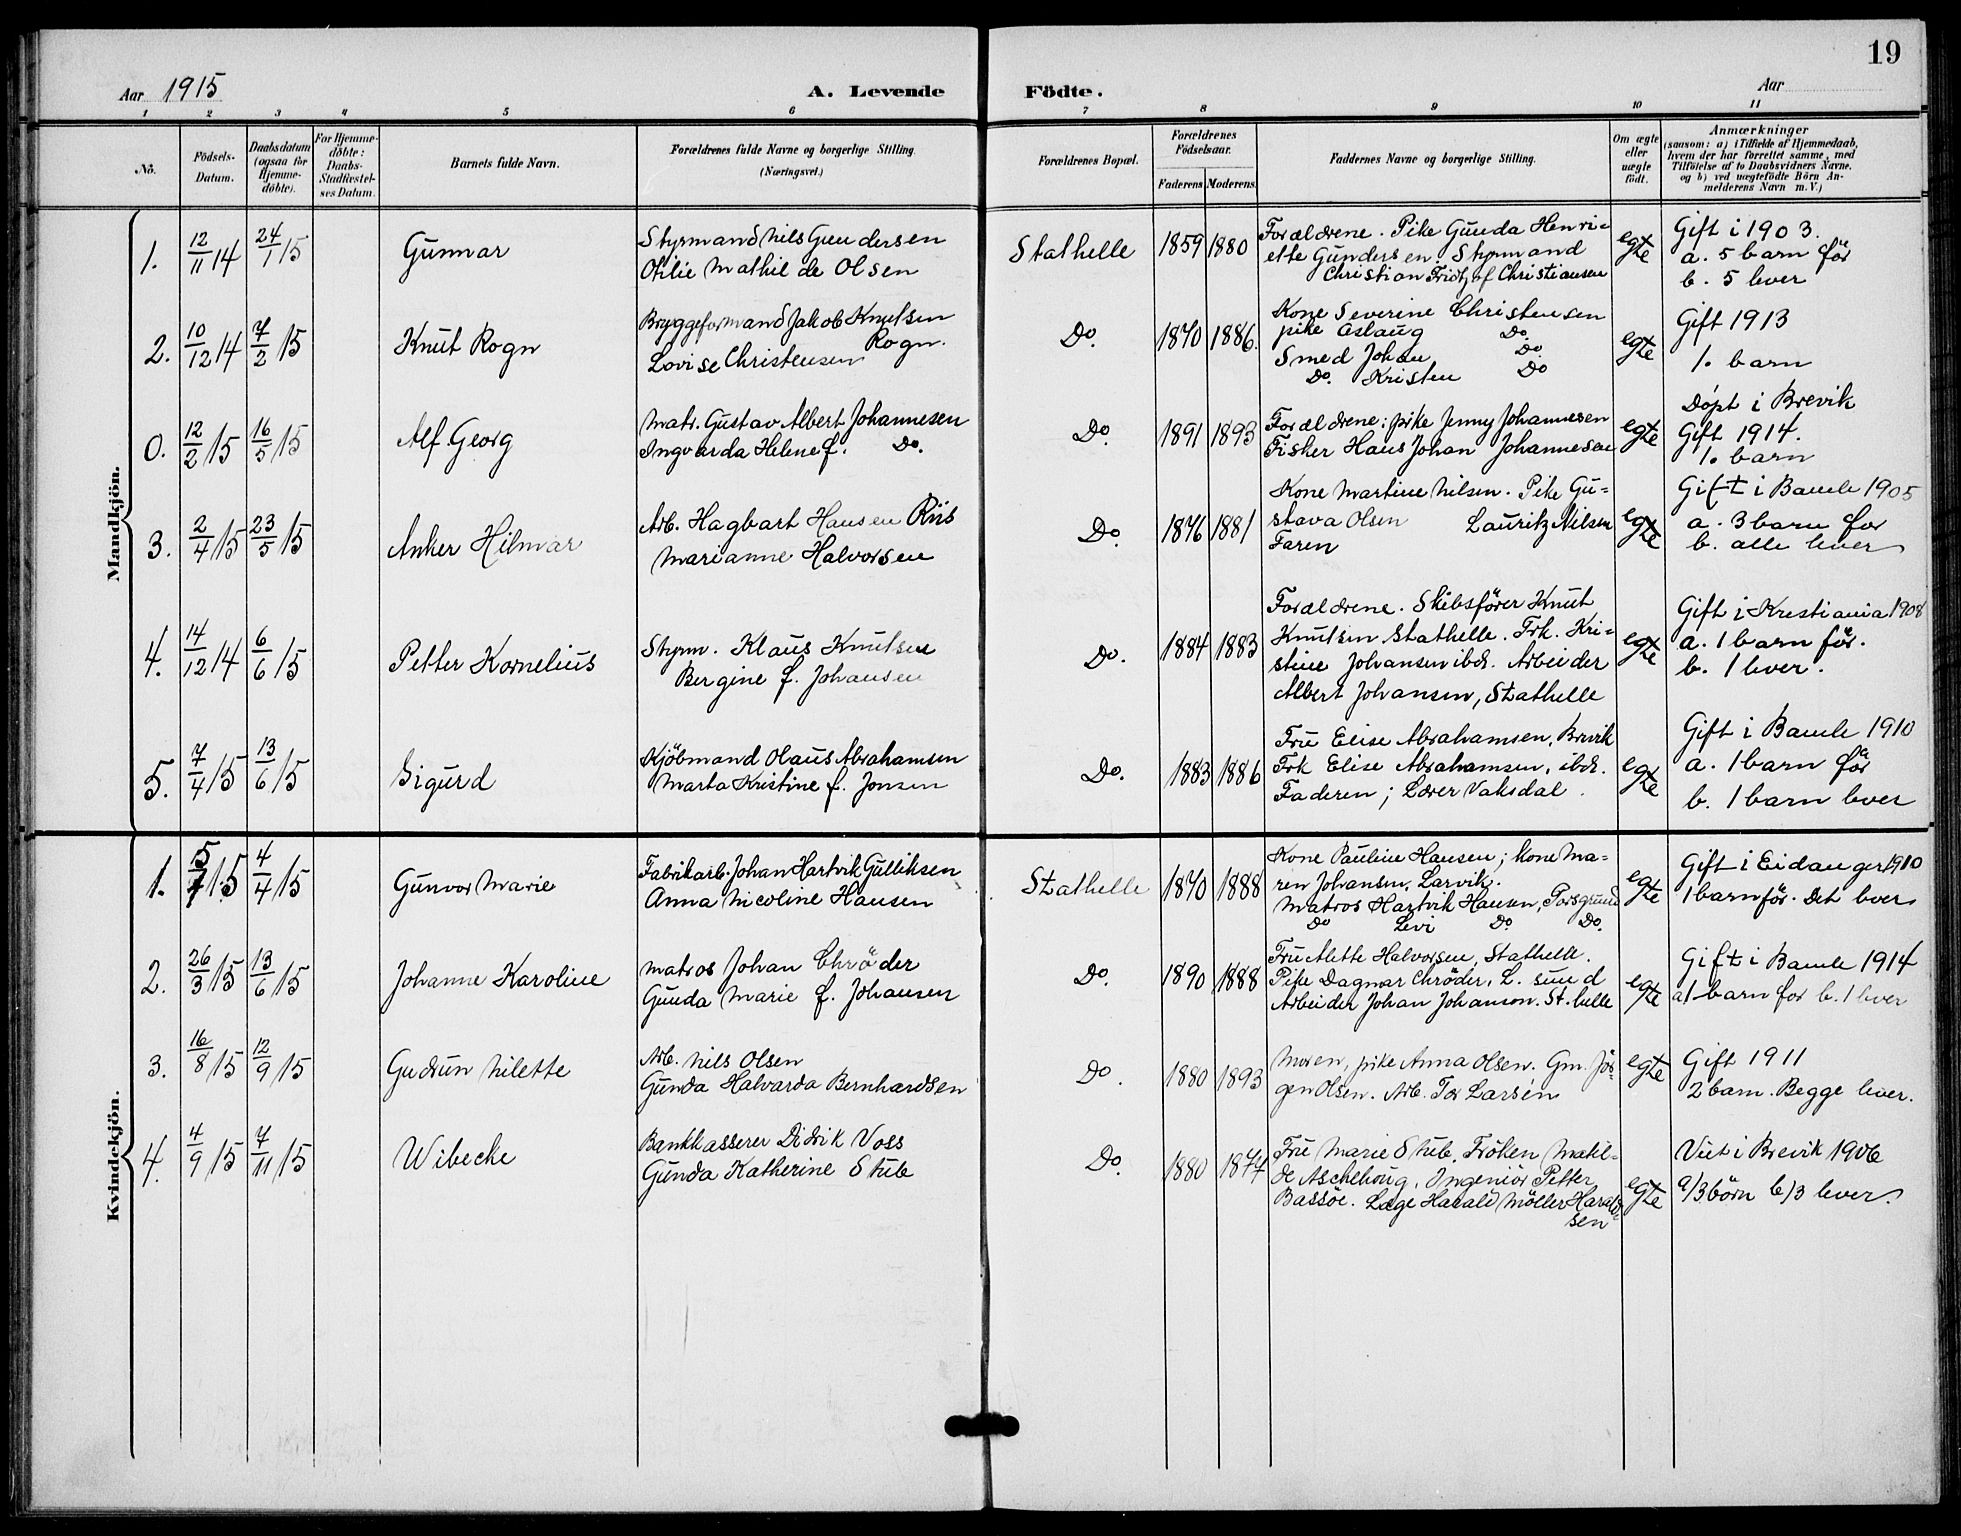 19
Aar 1915 A. Levende Födte. Aar
1 2 3 4 5 6 7 8 9 10 11
No.
Födsels-Datum.
Daabsdatum (ogsaa for Hjemme-döbte).
For Hjemme-döbte: Daabs-Stadfæstel-ses Datum.
Barnets fulde Navn.
Forældrenes fulde Navne og borgerlige Stilling.
(Næringsvei.)
Forældrenes Bopæl.
Forældrenes Födselsaar.
Faderens Moderens.
Faddernes Navne og borgerlige Stilling.
Om ægte eller uægte födt.
Anmærkninger
(saasom: a) i Tilfælde af Hjemmedaab,
hvem der har forrettet samme, med
Tilföielse af to Daabsvidners Navne,
og b) ved uægtefödte Börn An-
melderens Navn m. V.)
Mandkjön.
1. 12/11 14 24/1 15 Gunnar
Styrmand Nils Gundersen
Otilie Mathilde Olsen
Stathelle 1859 1880
Forældrene. Pike Gunda Henri-
ette Gundersen. Styrmand
Christian Fridtjof Christiansen
egte
Gift i 1903.
a. 5 barn för
b. 5 lever
2. 10/12 14 7/2 15 Knut Rogn
Bryggeformand Jakob Knutsen
Rogn.
Lovise Christensen
Do. 1870 1886.
Kone Severine Christensen
pike Aslaug Do.
Smed Johan Do.
Do. Kristen Do
egte
Gift 1913
1. barn
0. 12/2 15 16/5 15 Alf Georg
Matr. Gustav Albert Johannesen
Ingvarda Helene f. Do.
Do. 1891 1893
Forældrene: pike Jenny Johannesen
Fisker Hans Johan Johannesen
egte
Döpt i Brevik
Gift 1914.
1. barn
3. 2/4 15 23/5 15 Anker Hilmar
Arb. Hagbart Hansen Riis
Marianne Halvorsen
Do. 1876 1881
Kone Martine Nilsen. Pike Gu=
stava Olsen Lauritz Nilsen
Faren
egte
Gift i Bamle 1905
a. 3 barn for
b. alle lever
4. 14/12 14 6/6 15 Petter Kornelius
Styrm. Klaus Knutsen
Bergine f. Johansen
Do. 1884 1883
Forældrene. Skibsförer Knut
Knutsen Stathelle. Frk. Kri=
stine Johansen ibd. Arbeider
Albert Johansen, Stathelle
egte
Gift i Kristiania 1908
a. 1 barn för.
b. 1 lever.
5. 7/4 15 13/6 15 Sigurd
Kjöbmand Olaus Abrahamsen
Marta Kristine f. Jonsen
Do. 1883 1886
Fru Elise Abrahamsen, Brevik
Frk Elise Abrahamsen, ibd.
Faderen; Lærer Vaksdal.
egte
Gift i Bamle 1910
a. 1 barn för
b. 1 barn lever
Kvindekjön.
1. 5/1 15 4/4 15 Gunvor Marie
Fabrikarb. Johan Hartvik Gulliksen
Anna Nicoline Hansen
Stathelle 1870 1888
Kone Pauline Hansen; Kone Ma=
ren Johansen, Larvik.
Matros Hartvik Hansen, Porsgrund
Do Levi Do Do.
egte
Gift i Eidanger 1910
1 barn för. Det lever
2. 26/3 15 13/6 15 Johanne Karoline
Matros Johan Chröder
Gunda Marie f. Johansen
Do. 1890 1888
Fru Alette Halvorsen, Stathelle.
Pike Dagmar Chröder, L. sund
Arbeider Johan Johanson. St. helle
egte
Gift i Bamle 1914
a 1 barn for b. 1 lever
3. 16/8 15 12/9 15 Gudrun Nilette
Arb. Nils Olsen
Gunda Halvarda Bernhardsen
Do. 1880 1893
Moren, pike Anna Olsen. Gm. Jör-
gen Olsen. Arb. Tor Larsen
egte
Gift 1911
2 barn. Begge lever.
4. 4/9 15 7/11 15 Wibecke
Bankkasserer Didrik Voss
Gunda Katherine Stub
Do. 1880 1877
Fru Marie Stub, Fröken Matil=
de Aschehoug, Ingeniör Petter
Bassöe. Læge Harald Möller Harald-
sen
egte
Viet i Brevik 1906
a/3 börn b/3 lever